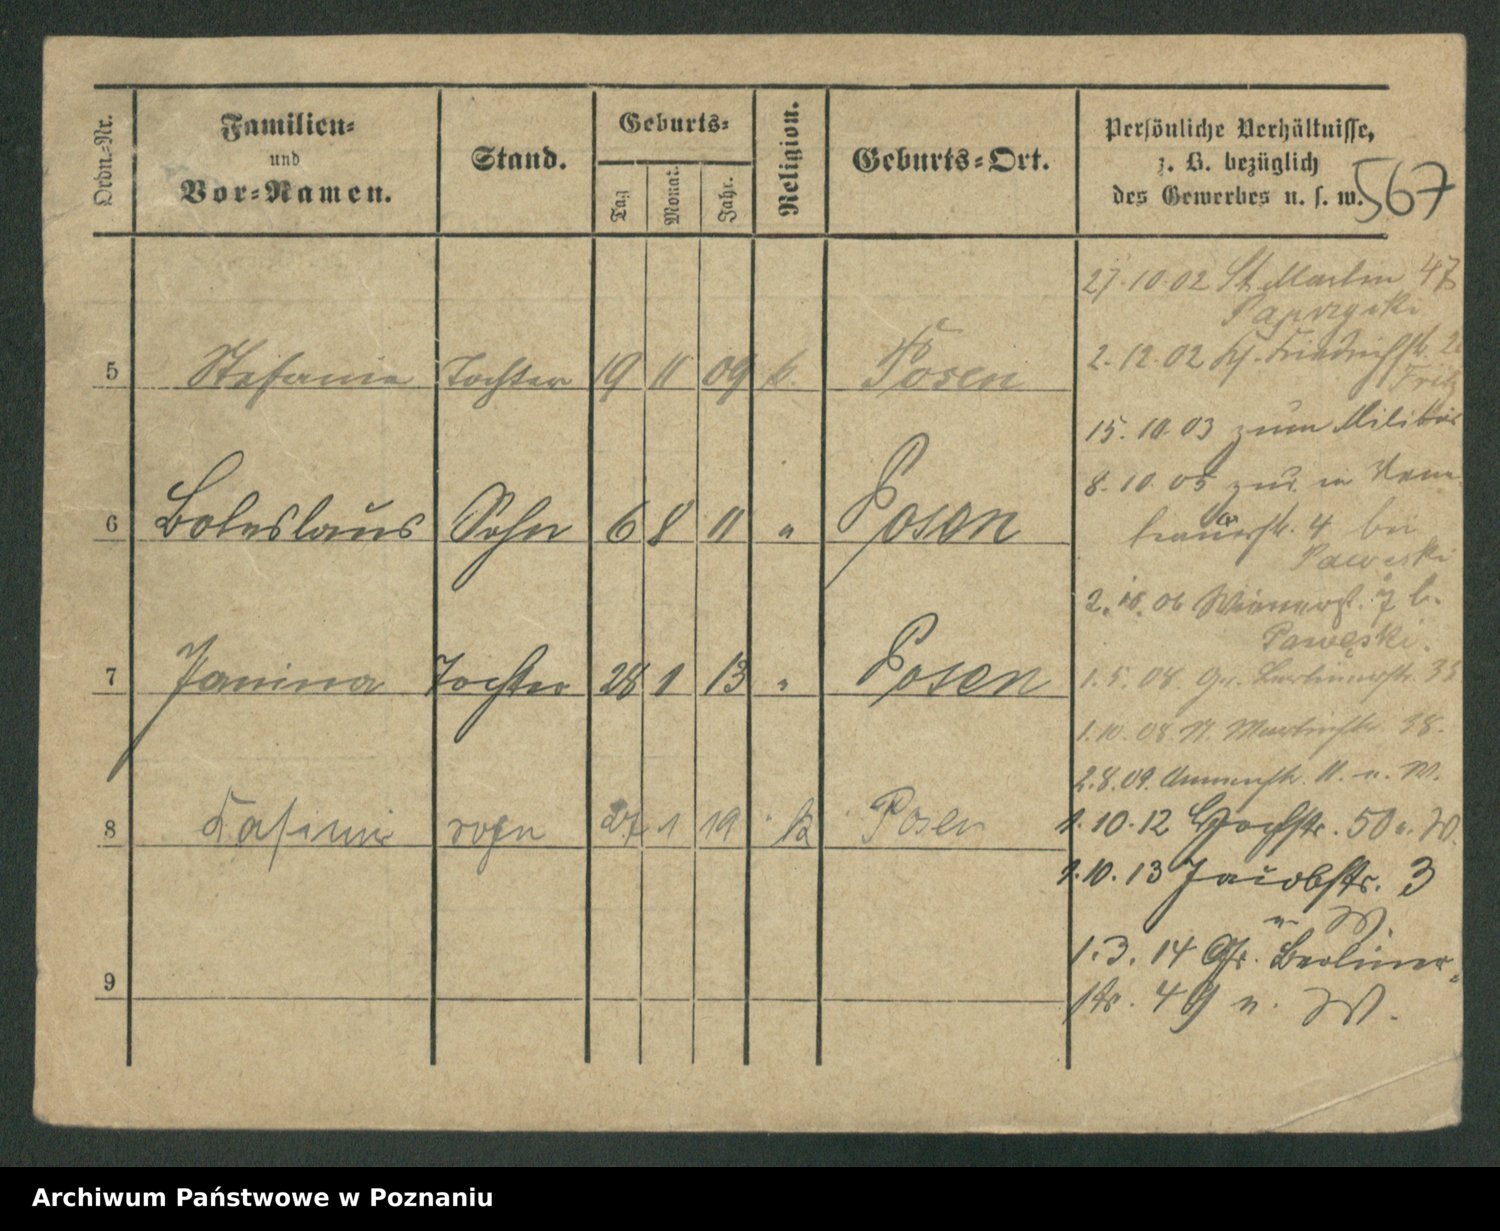 Ordn.-Nr.
Familien-
und
Vor-Namen.
Stand.
Geburts-
Tag
Monat.
Jahr.
Religion.
Geburts-Ort.
Persönliche Verhältnisse,
z. B. bezüglich
des Gewerbes u. s. w.
567
5 Stefanie Tochter 19 11 09 k. Posen
6 Boleslaus Sohn 6 8 11 " Posen
7 Janina Tochter 28 1 13 " Posen
8 Casimir Sohn 27 1 19 k Posen
9
27.10.02 St. Martin 47
Paprzycki
2.12.02 Friedrichstr.
Fritz
15.10.03 zum Militär
8.10.05 zur. in
4 bei
Pawęski
2.10.06 Wienerst. 7 b.
Pawęski.
1.5.08. Gr. Berlinerstr. 33
1.10.08. St. Martinstr. 38.
2.8.09. Annenstr. 11. n. W.
1.10.12 Hochstr. 50 n. W.
1.10.13 Jacobstr. 3
n. W.
1.3.14 Gr. Berliner-
str. 49 n. W.
Archiwum Państwowe w Poznaniu